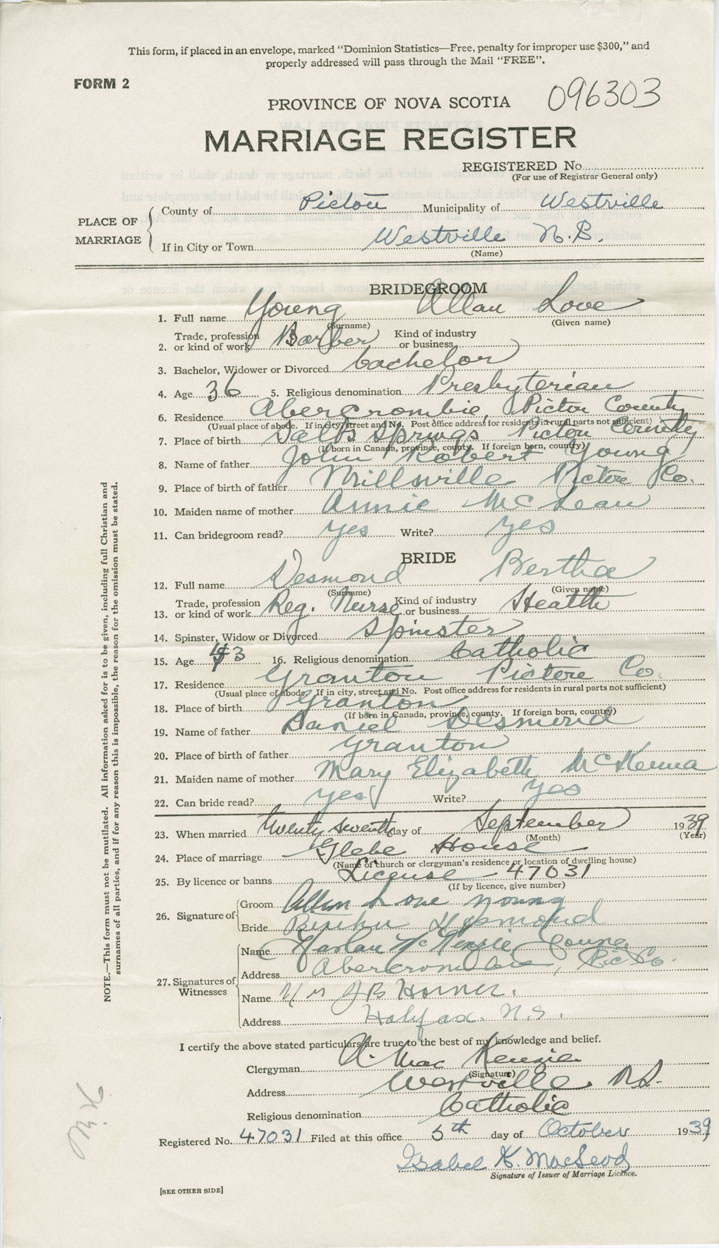 This form, if placed in an envelope, marked "Dominion Statistics—Free, penalty for improper use $300," and
properly addressed will pass through the Mail "FREE".
FORM 2
PROVINCE OF NOVA SCOTIA 096303
MARRIAGE REGISTER
REGISTERED No.
(For use of Registrar General only)
PLACE OF MARRIAGE
County of Pictou Municipality of Westville
If in City or Town Westville N.S.
(Name)
BRIDEGROOM
1. Full name Young Allan Love
(Surname) (Given name)
2. Trade, profession or kind of work Barber Kind of industry or business
3. Bachelor, Widower or Divorced bachelor
4. Age 36 5. Religious denomination Presbyterian
6. Residence Abercrombie, Pictou County
(Usual place of abode. If in city, street and No. Post office address for residents in rural parts not sufficient)
7. Place of birth Salt Springs Pictou County
(If born in Canada, province, county. If foreign born, country)
8. Name of father John Robert Young
9. Place of birth of father Millsville Pictou Co.
10. Maiden name of mother Annie McLean
11. Can bridegroom read? yes Write? yes
BRIDE
12. Full name Desmond Bertha
(Surname) (Given name)
13. Trade, profession or kind of work Reg. Nurse Kind of industry or business Health
14. Spinster, Widow or Divorced Spinster
15. Age 43 16. Religious denomination Catholic
17. Residence Granton Pictou Co.
(Usual place of abode. If in city, street and No. Post office address for residents in rural parts not sufficient)
18. Place of birth Granton
(If born in Canada, province, county. If foreign born, country)
19. Name of father Daniel Desmond
20. Place of birth of father Granton
21. Maiden name of mother Mary Elizabeth McKenna
22. Can bride read? yes Write? yes
23. When married twenty seventh day of September 1939
(Month) (Year)
24. Place of marriage Glebe House
(Name of church or clergyman's residence or location of dwelling house)
25. By licence or banns License 47031
(If by licence, give number)
26. Signature of
Groom Allan Love Young
Bride Bertha Desmond
27. Signatures of Witnesses
Name McKenzie Young
Address Abercrombie, Pic Co.
Name J B Horner.
Address Halifax. N.S.
I certify the above stated particulars are true to the best of my knowledge and belief.
Clergyman A. MacKenzie
(Signature)
Address Westville N.S.
Religious denomination Catholic
Registered No. 47031 Filed at this office 5th day of October 1939
Isabel K. MacLeod
Signature of Issuer of Marriage Licence.
[SEE OTHER SIDE]
NOTE.—This form must not be mutilated. All information asked for is to be given, including full Christian and
surnames of all parties, and if for any reason this is impossible, the reason for the omission must be stated.